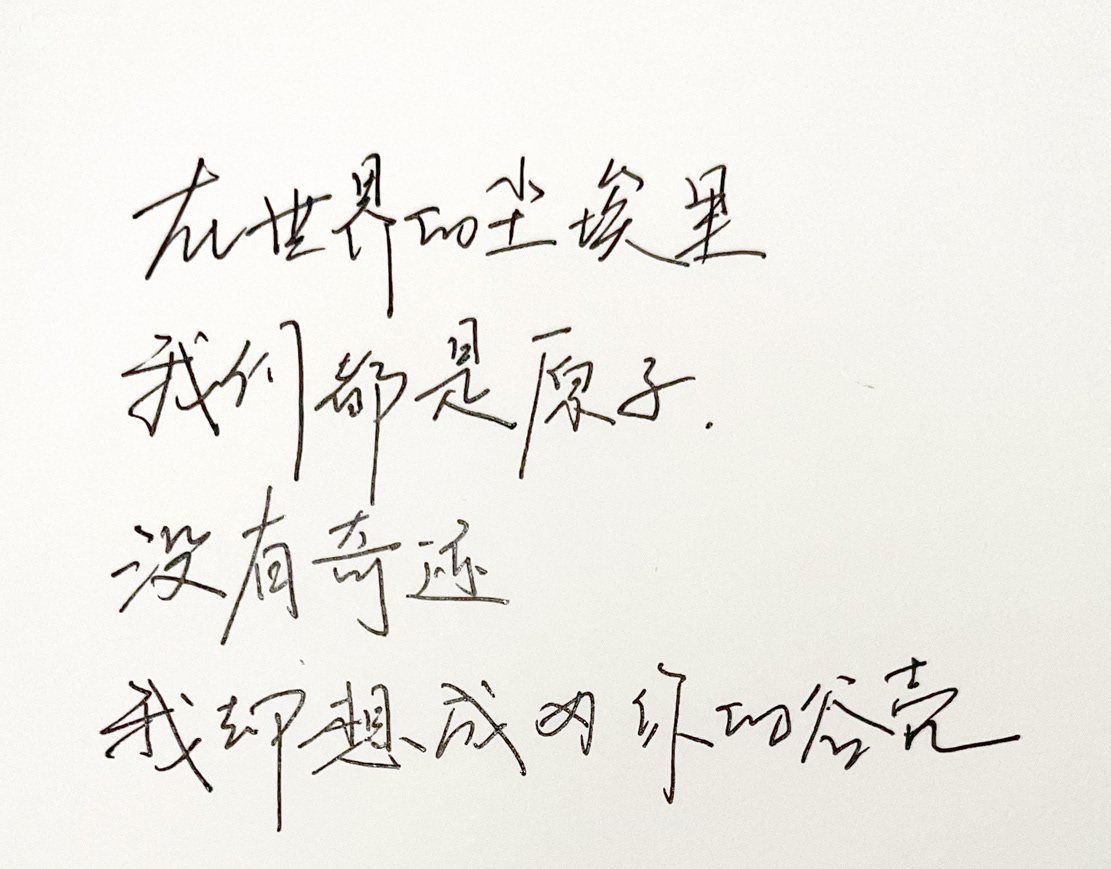 在世界的尘埃里
我们都是原子.
没有奇迹
我却想成为你的谷壳